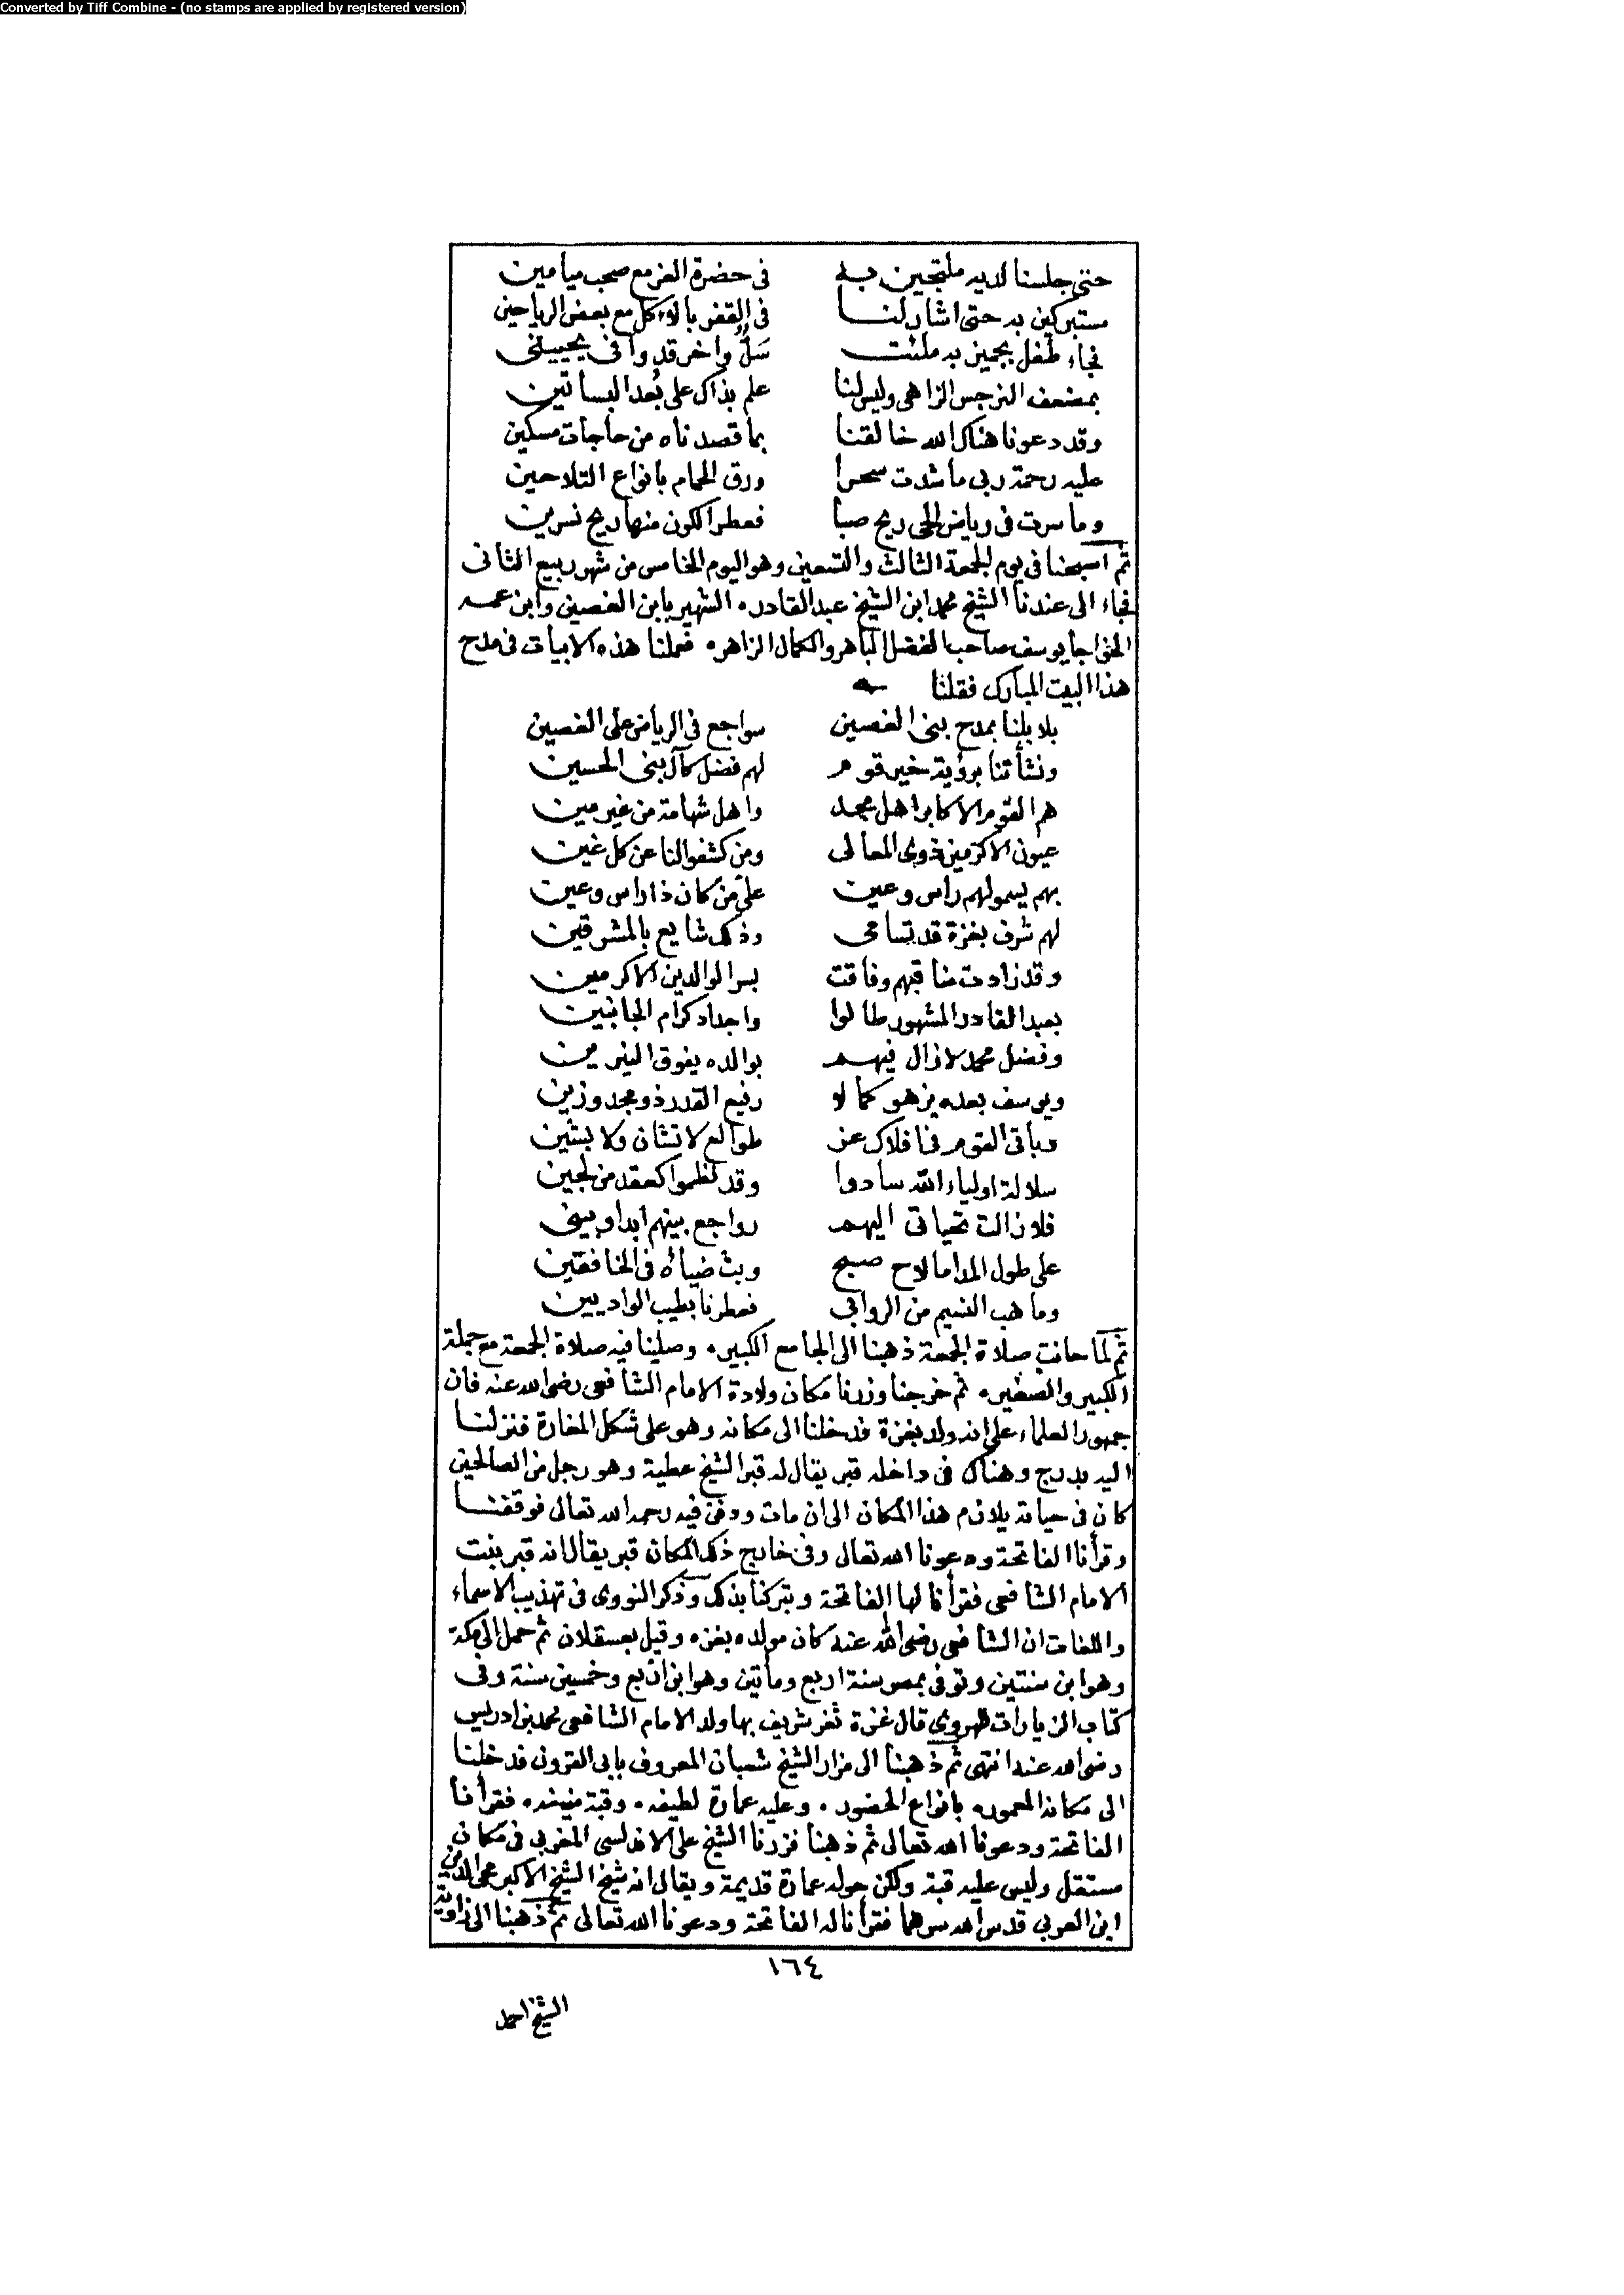 Converted by Tiff Combine - (no stamps are applied by registered version)
حتى جلسنا لديه ملتجين به في حضرة العز مع صحب ميامين
مستبركين به حتى اشار لنا في القفر بالاكل مع بعض الرياحين
فجاء طفل بجمين به ملئت سلٌّ واخر قد وافى يحييني
بمضعف النرجس الزاهى وليس لنا علم بذاك على بُعد البساتين
وقد دعونا هناك الله خالقنا بما قصدناه من حاجات مسكين
عليه رحمة ربى ما شدت سحرا ورق الحمام بانواع التلاحين
وما سرت فى رياض الحى ريح صبا فعطر الكون منها ريح نسرين
ثم اصبحنا فى يوم الجمعة الثالث والتسعين وهو اليوم الخامس من شهر ربيع الثانى
فجاء الى عندنا الشيخ محمد ابن الشيخ عبد القادر. الشهير بابن الغصين وابن عمه
الخواجا يوسف صاحب الفضل الباهر والكمال الزاهر. فعملنا هذه الابيات فى مدح
هذا البيت المبارك فقلنا
بلابلنا بمدح بنى الغصين سواجع فى الرياض على الغصين
ونشأتنا برؤية خير قوم لهم فضل كآل بنى الحسين
هم القوم الاكابر اهل مجد واهل شهامة من غير مين
عيون الاكرمين ذوى المعالى ومن كشفوا لنا عن كل غين
بهم يسمو لهم راس وعين على من كان ذا راس وعين
لهم شرف بغزة قد تسامى وذلك شايع بالمشرقين
وقد زادت مناقبهم وفاقت بسر الوالدين الاكرمين
بعبد القادر المشهور طالوا واجداد كرام الجانبين
وفضل محمد لا زال فيهم بوالده يفوق النيرين
ويوسف بعده يزهو كمالا رفيع القدر ذو مجد وزين
وباقى القوم فى افلاك عز طوالع لا تشان ولا بشين
سلالة اولياء الله سادوا وقد نظموا كعقد من لجين
فلا زالت تحياتى اليهم رواجع بينهم ابدا وبينى
على طول المدا ما لاح صبح وبث ضيائه فى الخافقين
وما هب النسيم من الروابى فعطرنا بطيب الواديين
ثم لما حانت صلاة الجمعة ذهبنا الى الجامع الكبير. وصلينا فيه صلاة الجمعة مع جملة
الكبير والصغير. ثم خرجنا وزرنا مكان ولادة الامام الشافعى رضى الله عنه فان
جمهور العلماء على انه ولد بغزة فدخلنا الى مكانه وهو على شكل المغارة فنزلنا
اليه بدرج وهناك فى داخله قبر يقال له قبر الشيخ عطية وهو رجل من الصالحين
كان فى حياته يلازم هذا المكان الى ان مات ودفن فيه رحمه الله تعالى فوقفنا
وقرأنا الفاتحة ودعونا الله تعالى وفى خارج ذلك المكان قبر يقال انه قبر بنت
الامام الشافعى فقرأنا لها الفاتحة وتبركنا بذلك وذكر النووى فى تهذيب الاسماء
واللغات ان الشافعى رضى الله عنه كان مولده بغزه وقيل بعسقلان ثم حمل الى مكة
وهو ابن سنتين وتوفى بمصر سنة اربع ومأتين وهو ابن اربع وخمسين سنة وفى
كتاب الزيارات للهروى قال غزة ثغر شريف بها ولد الامام الشافعى محمد بن ادريس
رضى الله عنه انتهى ثم ذهبنا الى مزار الشيخ شعبان المعروف بابى القرون فدخلنا
الى مكانه المعمور. بانواع الحضور. وعليه عمارة لطيفه. وقبة منيفه. فقرأنا
الفاتحة ودعونا الله تعالى ثم ذهبنا فزرنا الشيخ على الاندلسى المغربى فى مكان
مستقل وليس عليه قبة ولكن حوله عمارة قديمة ويقال انه شيخ الشيخ الاكبر محى الدين
ابن العربى قدس الله سرهما فقرأنا له الفاتحة ودعونا الله تعالى ثم ذهبنا الى زاوية
١٦٤
الشيخ احمد